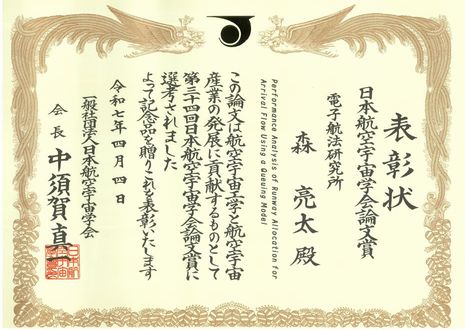 表彰状
日本航空宇宙学会論文賞
電子航法研究所
森 亮太 殿
Performance Analysis of Runway Allocation for
Arrival Flow Using a Queuing Model
この論文は航空宇宙工学と航空宇宙
産業の発展に貢献するものとして
第三十四回日本航空宇宙学会論文賞に
選考されました
よって記念品を贈りこれを表彰いたします
令和七年四月四日
一般社団法人日本航空宇宙学会
会長 中須賀真一